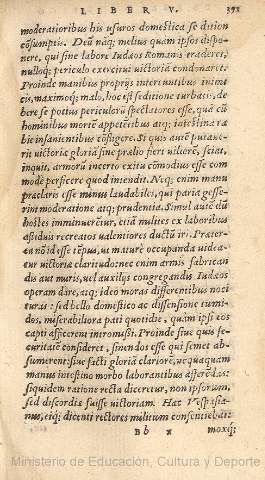 LIBER V. 393
moderatioribus his usuros domestica seditione
cõsumptis. Deũ nãq; melius quam ipsos dispo-
nere, qui sine labore Iudæos Romanis traderet,
nulloq; periculo exercitui uictoriã condonaret.
Proinde manibus proprijs intereuntibus inimi-
cis, maximoq; malo, hoc est seditione turbatis, de
bere se potius periculorũ spectatores esse, quã cũ
hominibus mortẽ appetentibus atq; intestina ra
bie insanientibus cõfligere. Si quis autẽ putaue-
rit uictoriæ gloriã sine prælio fore uiliorẽ, sciat,
inquit, armorũ incerto exitu cõmodius esse com
mode perficere quod intendit. Neq; enim manu
præclaris esse minus laudabiles, qui paria gesse-
rint moderatione atq; prudentia. Simul autẽ dũ
hostes imminuerẽtur, etiã milites ex laboribus
assiduis recreatos ualentiores ductũ ir. Præter-
ea nõ id esse tẽpus, ut mature occupanda uidea-
tur uictoriæ claritudo: nec enim armis fabrican
dis aut muris, uel auxilijs congregandis Iudæos
operam dare, atq; ideo moras differentibus noci
turas: sed bello domestico ac dissensione tumi-
dos, miserabiliora pati quotidie, quam ipsi eos
capti afficerent intromissi. Proinde siue quis se-
curitatẽ consideret, sinendos esse qui semet ab-
sumerent: siue facti gloriã clariorẽ, nequaquam
manus intestino morbo laborantibus afferẽdas:
siquidem ratione recta diceretur, non ipsorum,
sed discordiæ fuisse uictoriam. Hæc Vespasia-
nus, eiq; dicenti rectores militum consentiebãt:
Bb x moxq;
Ministerio de Educación, Cultura y Deporte